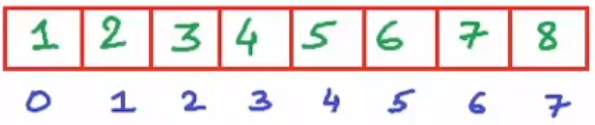 1 2 3 4 5 6 7 8
0 1 2 3 4 5 6 7